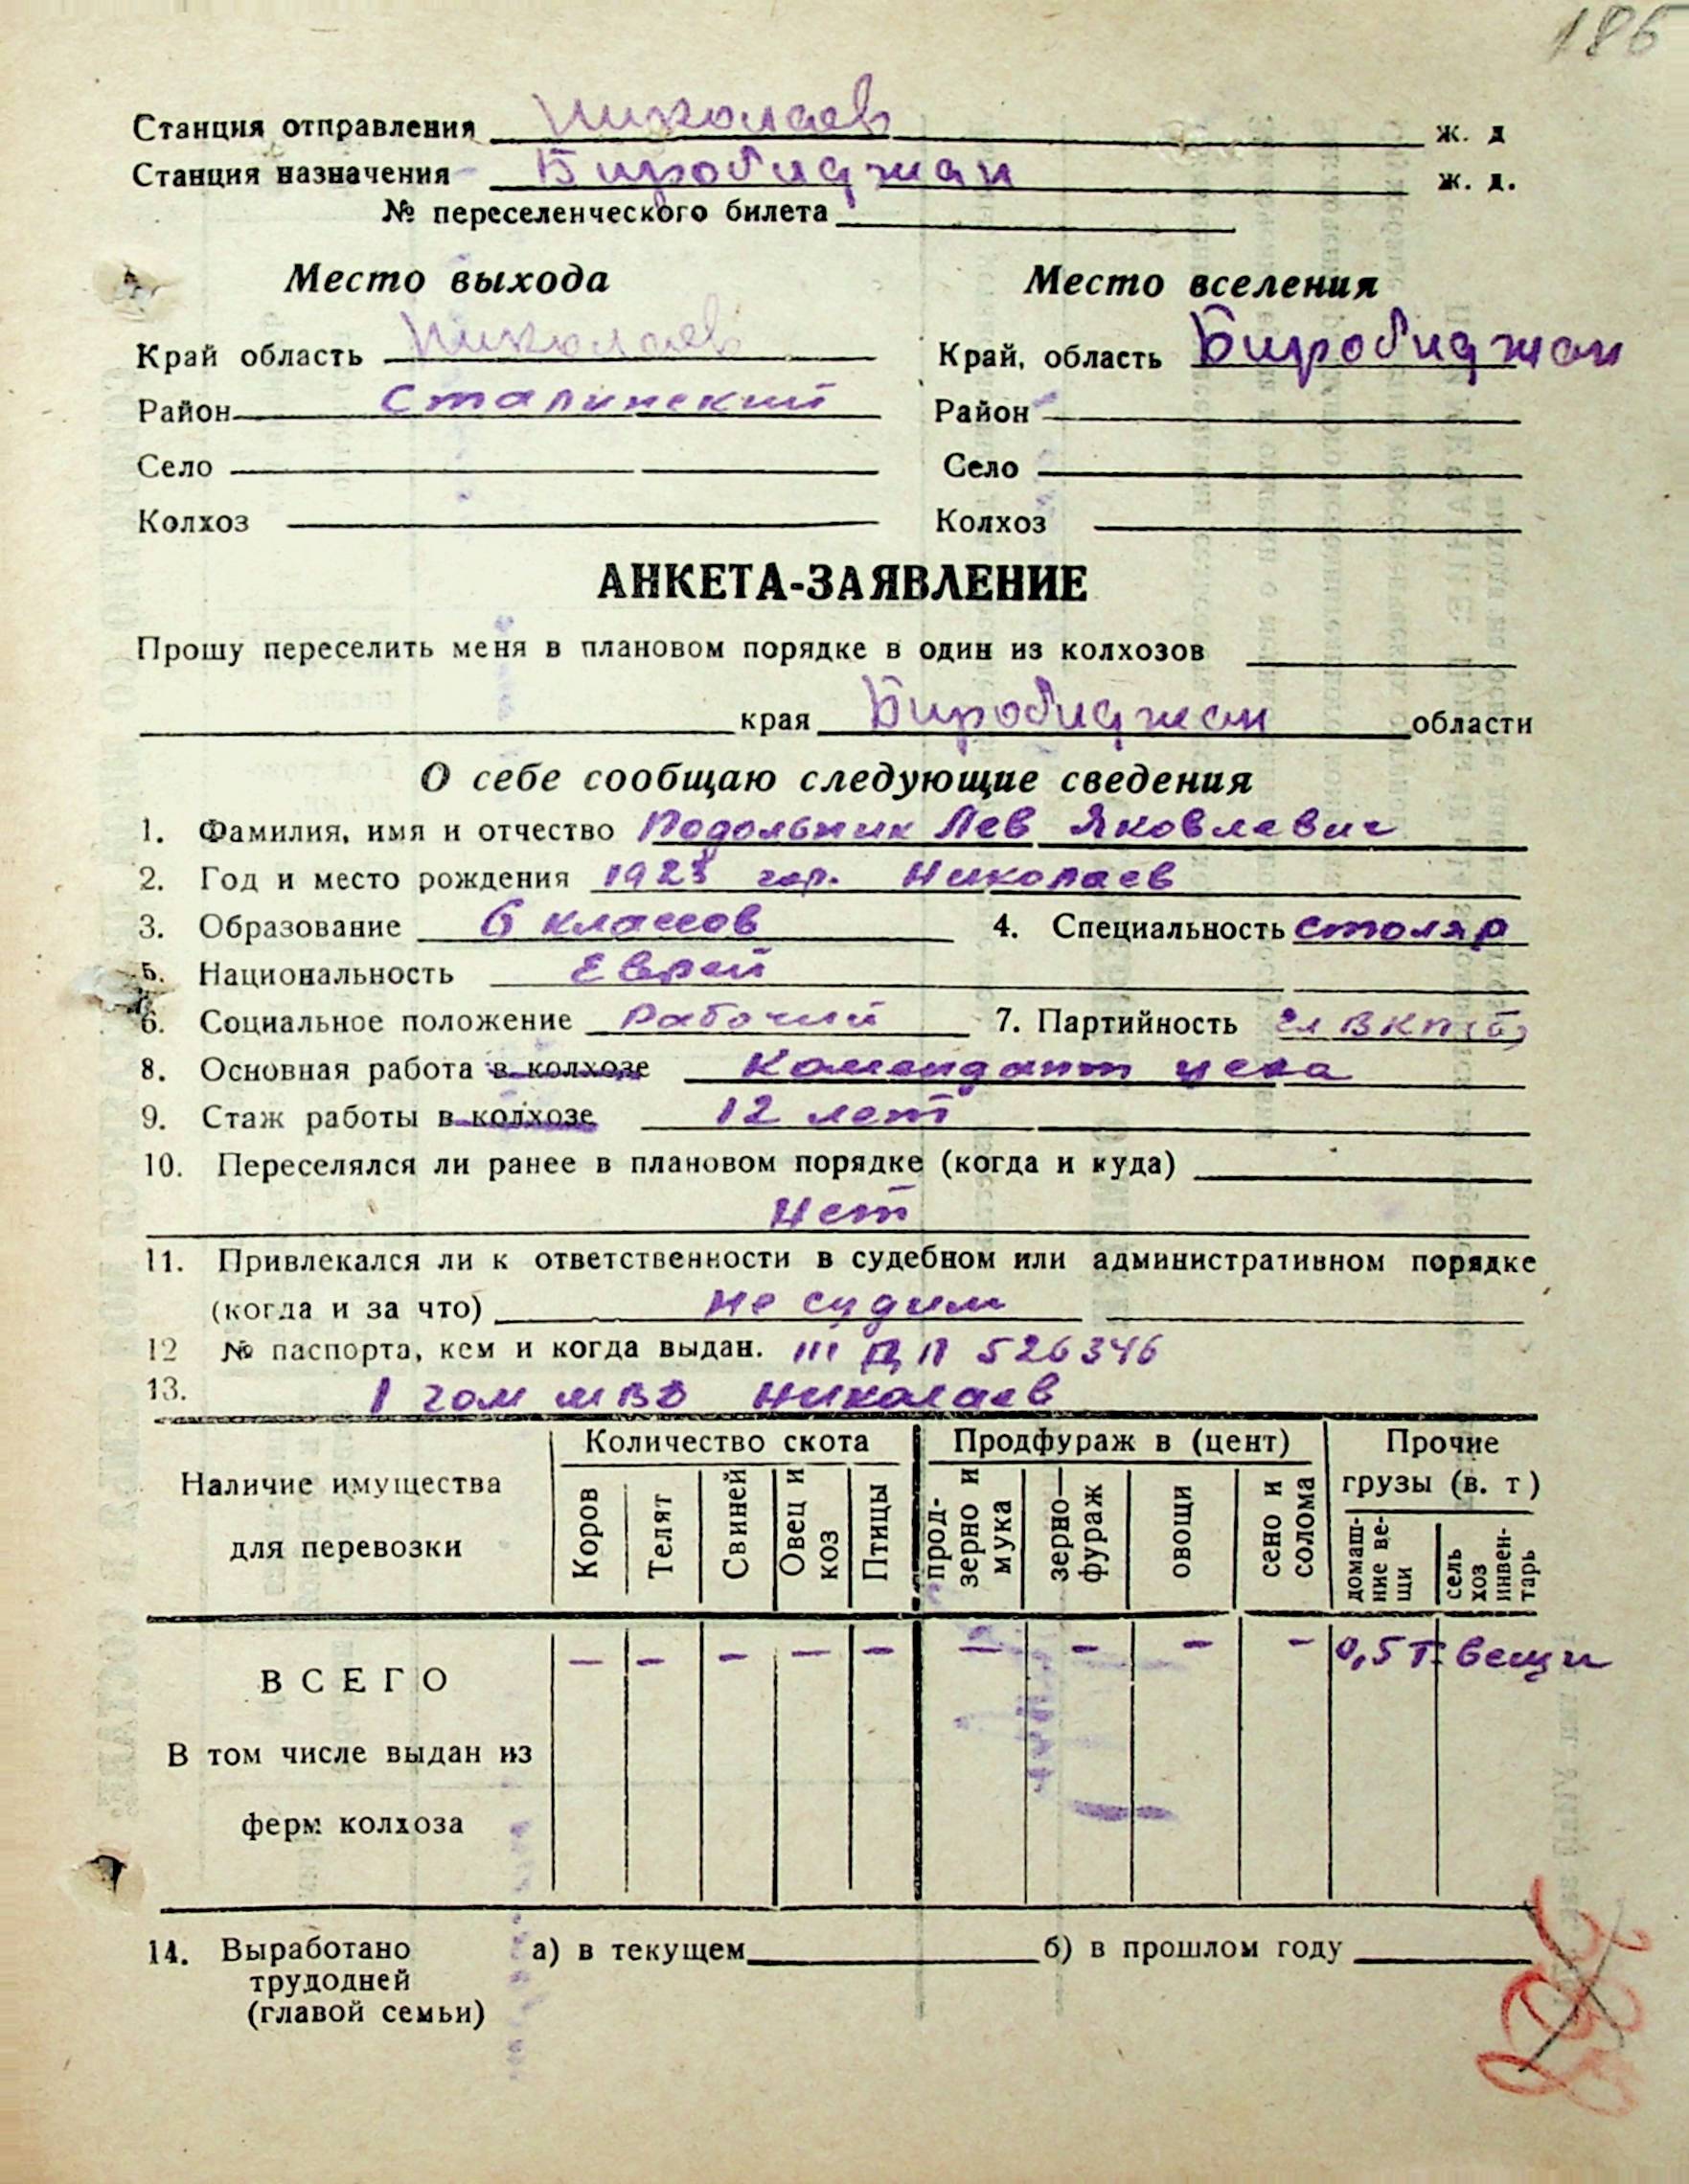 186
Станция отправления Николаев ж. д
Станция назначения Биробиджан ж. д.
№ переселенческого билета
Место выхода Место вселения
Край область Николаев Край, область Биробиджан
Район Сталинский Район
Село Село
Колхоз Колхоз
АНКЕТА-ЗАЯВЛЕНИЕ
Прошу переселить меня в плановом порядке в один из колхозов
края Биробиджан области
О себе сообщаю следующие сведения
1. Фамилия, имя и отчество Подольник Лев Яковлевич
2. Год и место рождения 1923 гор. Николаев
3. Образование 6 классов 4. Специальность столяр
5. Национальность Еврей
6. Социальное положение Рабочий 7. Партийность чл ВКП(б)
8. Основная работа в колхозе Комендант цеха
9. Стаж работы в колхозе 12 лет
10. Переселялся ли ранее в плановом порядке (когда и куда)
Нет
11. Привлекался ли к ответственности в судебном или административном порядке
(когда и за что) Не судим
12 № паспорта, кем и когда выдан. III 526346
13. 1 гом МВД Николаев
Наличие имущества для перевозки
Количество скота Продфураж в (цент) Прочие грузы (в. т)
Коров Телят Свиней Овец и коз Птицы прод-зерно и мука зерно—фураж овощи сено и солома домаш-ние ве-щи сель хоз инвен-тарь
ВСЕГО – – – – – – – – – 0,5 т вещи
В том числе выдан из
ферм колхоза
14. Выработано а) в текущем б) в прошлом году
трудодней
(главой семьи)